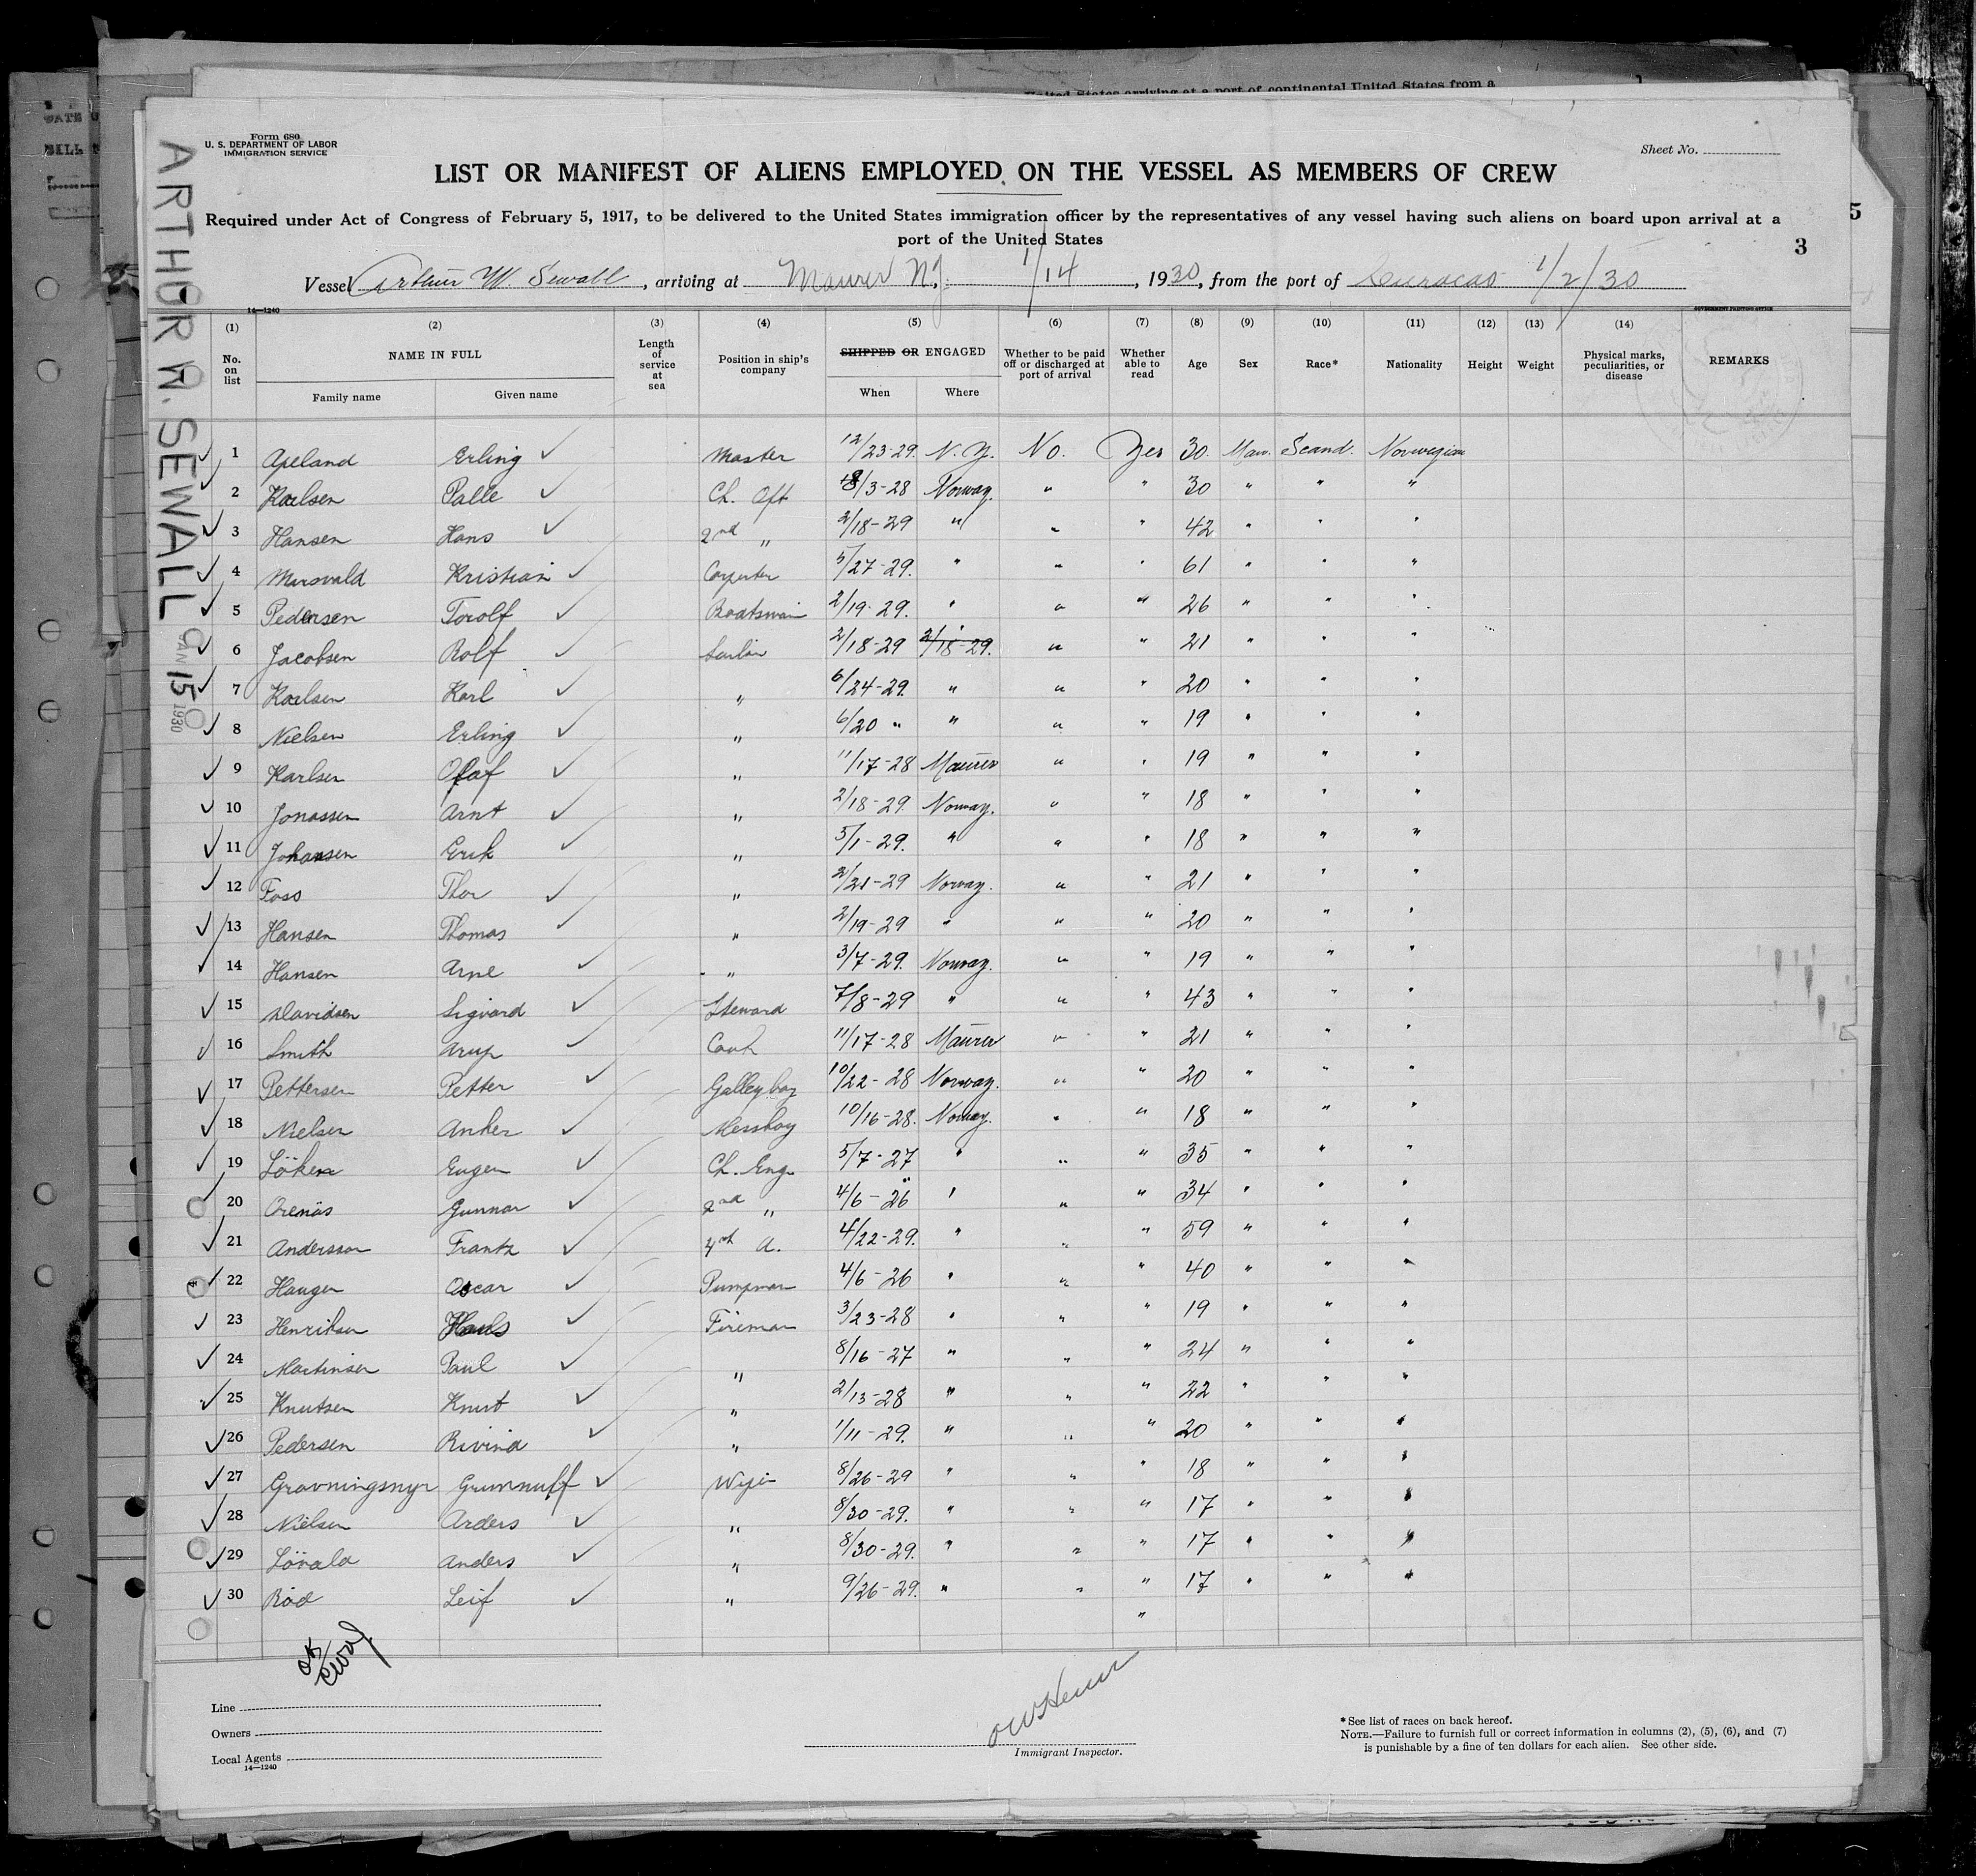 United States arriving at a port of continental United States from a
5
Form 680
U. S. DEPARTMENT OF LABOR
IMMIGRATION SERVICE
Sheet No.
LIST OR MANIFEST OF ALIENS EMPLOYED ON THE VESSEL AS MEMBERS OF CREW
Required under Act of Congress of February 5, 1917, to be delivered to the United States immigration officer by the representatives of any vessel having such aliens on board upon arrival at a
port of the United States
3
Vessel Arthur W. Sewall, arriving at Maurer N.J. 1/14, 1930, from the port of Curacao 1/2/30
14—1240
GOVERNMENT PRINTING OFFICE
ARTHUR W. SEWALL
JAN 15 1930
(1) (2) (3) (4) (5) (6) (7) (8) (9) (10) (11) (12) (13) (14)
No. on list NAME IN FULL Length of service at sea Position in ship's company SHIPPED OR ENGAGED Whether to be paid off or discharged at port of arrival Whether able to read Age Sex Race* Nationality Height Weight Physical marks, peculiarities, or disease REMARKS
Family name Given name When Where
1 Apeland Erling Master 12/23-29. N.Y. No. Yes 30 Man. Scand. Norwegian
2 Karlsen Palle Ch. Off 8/3-28 Norway. " " 30 " " "
3 Hansen Hans 2nd " 2/18-29 " " " 42 " " "
4 Kristian Carpenter 5/27-29. " " " 61 " " "
5 Pedersen Torolf Boatswain 2/19-29. " " " 26 " " "
6 Jacobsen Rolf Sailor 2/18-29 2/18-29. " " 21 " " "
7 Karlsen Karl " 6/24-29. " " " 20 " " "
8 Nielsen Erling " 6/20 " " " " 19 " " "
9 Karlsen Olaf " 11/17-28 Maurer " " 19 " " "
10 Jonassen Arnt " 2/18-29. Norway. " " 18 " " "
11 Johansen Erik " 5/1-29. " " " 18 " " "
12 Foss Thor " 2/21-29 Norway. " " 21 " " "
13 Hansen Thomas " 2/19-29 " " " 20 " " "
14 Hansen Arne " 3/7-29. Norway. " " 19 " " "
15 Davidsen Sigvard Steward 7/8-29 " " " 43 " " "
16 Smith Arup Cook 11/17-28 Maurer " " 21 " " "
17 Pettersen Petter Galleyboy 10/22-28 Norway. " " 20 " " "
18 Nielsen Anker Messboy 10/16-28. Norway. " " 18 " " "
19 Löken Eugen Ch. Eng. 5/7-27 " " " 35 " " "
20 Orenäs Gunnar 2nd " 4/6-26 " " " 34 " " "
21 Andersson Frantz 4th A. 4/22-29. " " " 59 " " "
22 Hauger Oscar Pumpman 4/6-26 " " " 40 " " "
23 Henriksen Fireman 3/23-28 " " " 19 " " "
24 Martinsen Paul " 8/16-27 " " " 24 " " "
25 Knutsen Knut " 2/13-28 " " " 22 " " "
26 Pedersen " 1/11-29. " " " 20 " " "
27 Wiper 8/26-29 " " " 18 " " "
28 Nielsen Arders " 8/30-29. " " " 17 " " "
29 Lövald Anders " 8/30-29. " " " 17 " " "
30 Röd Leif " 9/26-29. " " " 17 " " "
"
Line
Owners
Local Agents
14—1240
Immigrant Inspector.
*See list of races on back hereof.
NOTE.—Failure to furnish full or correct information in columns (2), (5), (6), and (7)
is punishable by a fine of ten dollars for each alien. See other side.